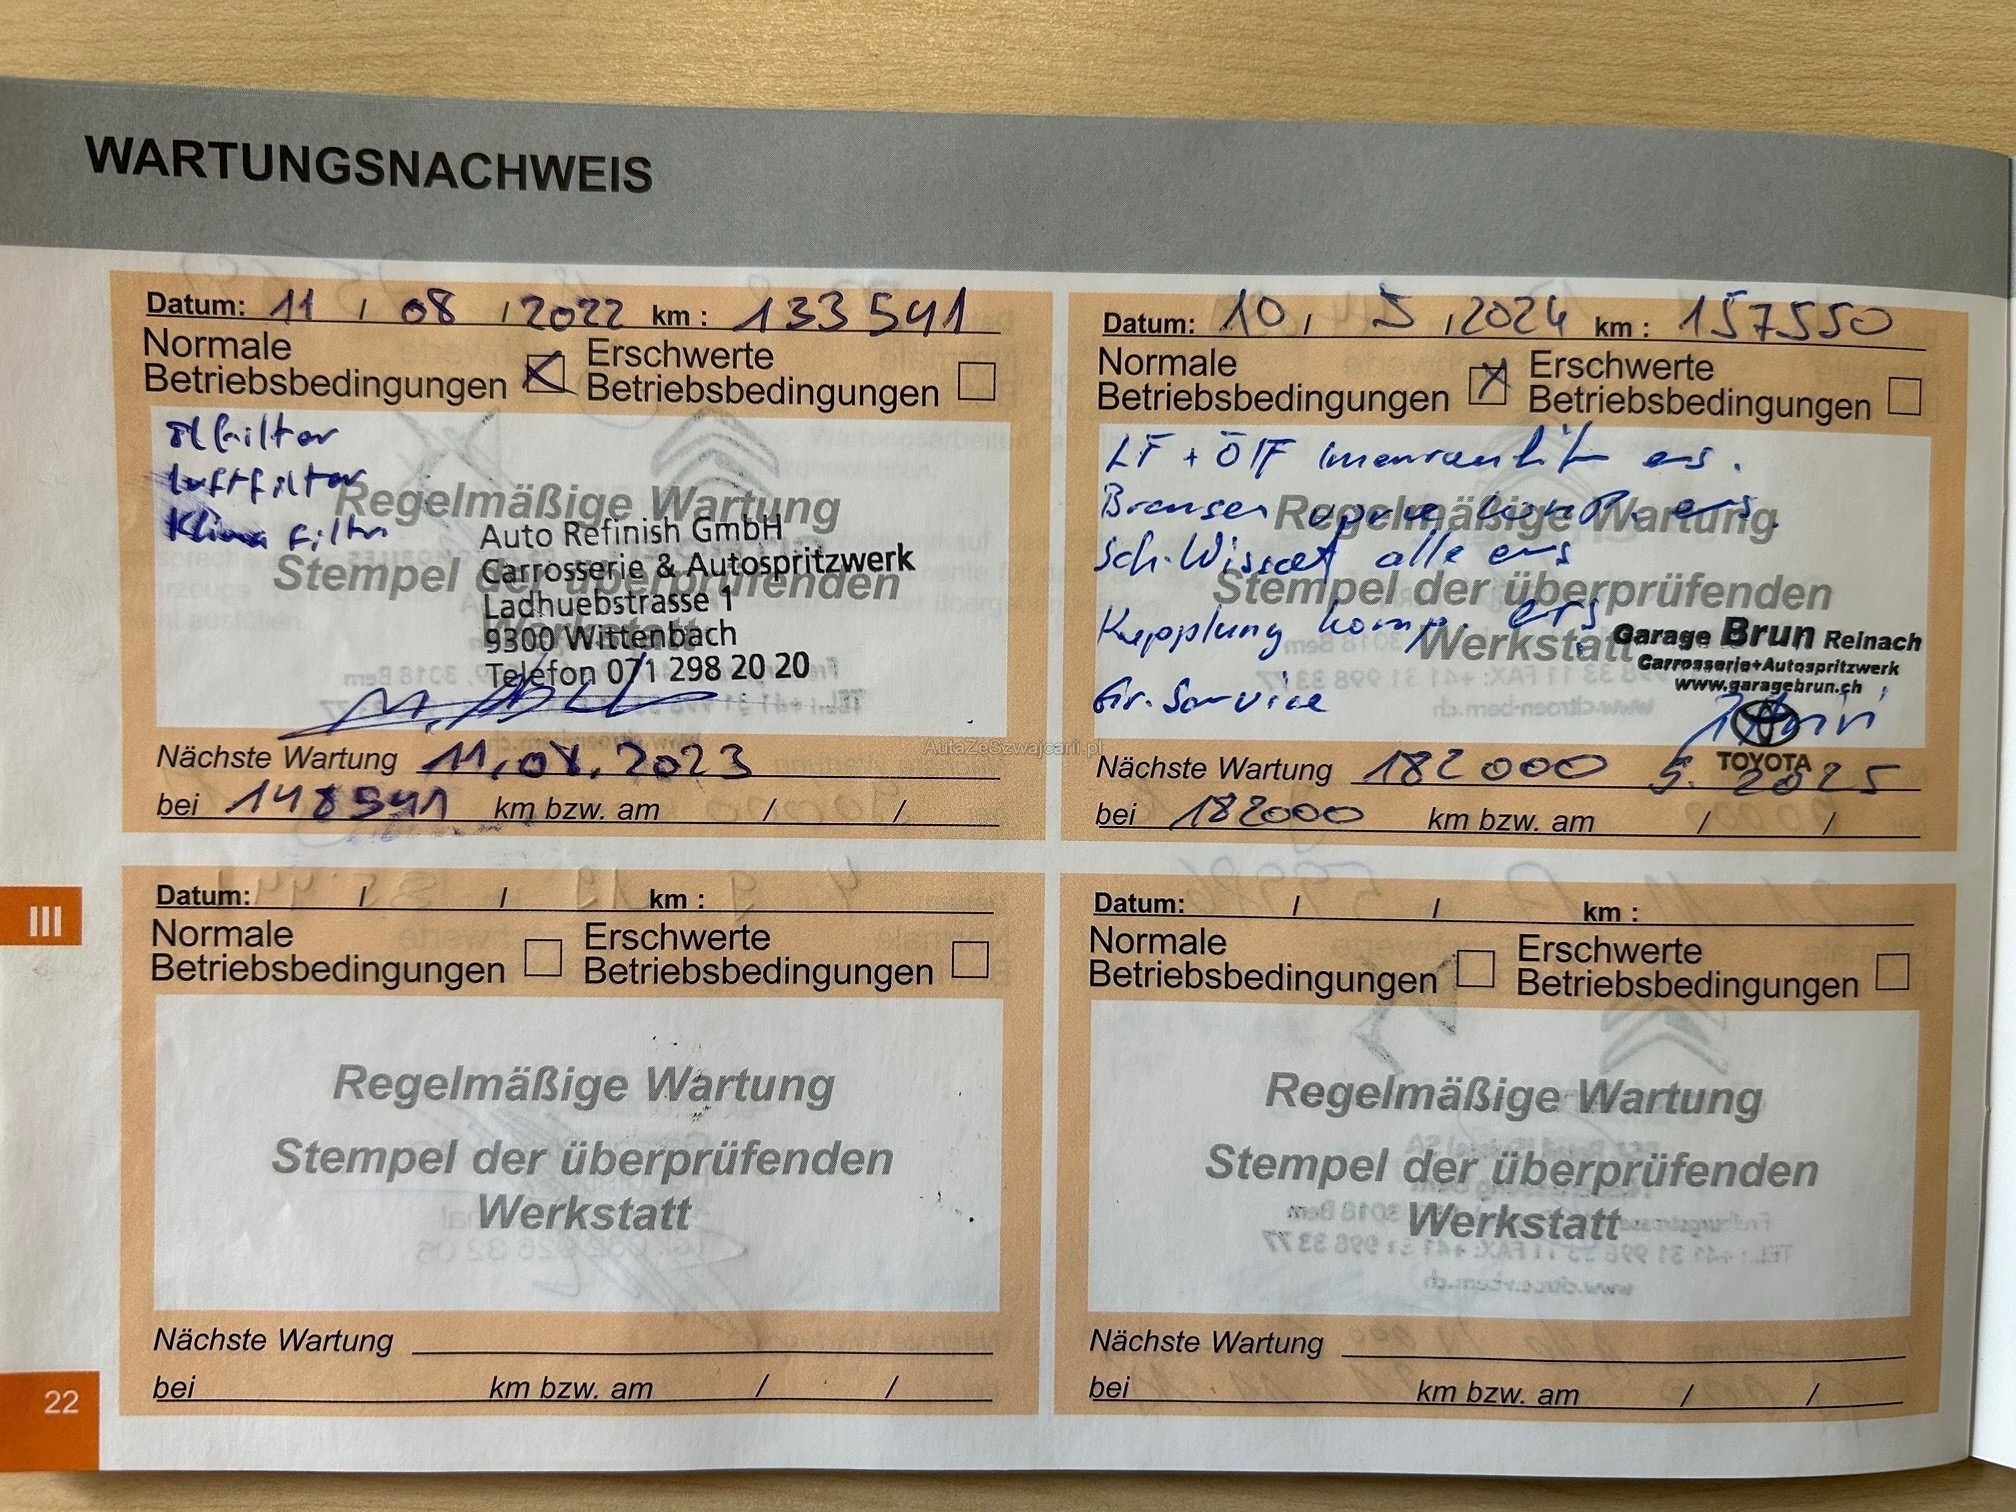 WARTUNGSNACHWEIS
Datum: 11 / 08 / 2022 km : 133 541
Normale Betriebsbedingungen
Erschwerte Betriebsbedingungen
Ölfilter
Luftfilter
Klima Filter
Regelmäßige Wartung
Stempel der überprüfenden
Werkstatt
Auto Refinish GmbH
Carrosserie & Autospritzwerk
Ladhuebstrasse 1
9300 Wittenbach
Telefon 071 298 20 20
Nächste Wartung 11.08.2023
bei 148541 km bzw. am / /
Datum: 10 / 5 / 2024 km : 157550
Normale Betriebsbedingungen
Erschwerte Betriebsbedingungen
LF + ÖlF ers.
Bremsen komp. ers.
Sch. alle ers
Kupplung komp. ers
Gr. Service
Regelmäßige Wartung
Stempel der überprüfenden
Werkstatt
Garage Brun Reinach
Carrosserie+Autospritzwerk
www.garagebrun.ch
TOYOTA
Nächste Wartung 182000 5. 2025
bei 182000 km bzw. am / /
AutaZeSzwajcarii.pl
III
Datum: / / km :
Normale Betriebsbedingungen
Erschwerte Betriebsbedingungen
Regelmäßige Wartung
Stempel der überprüfenden
Werkstatt
Nächste Wartung
bei km bzw. am / /
Datum: / / km :
Normale Betriebsbedingungen
Erschwerte Betriebsbedingungen
Regelmäßige Wartung
Stempel der überprüfenden
Werkstatt
Nächste Wartung
bei km bzw. am / /
22